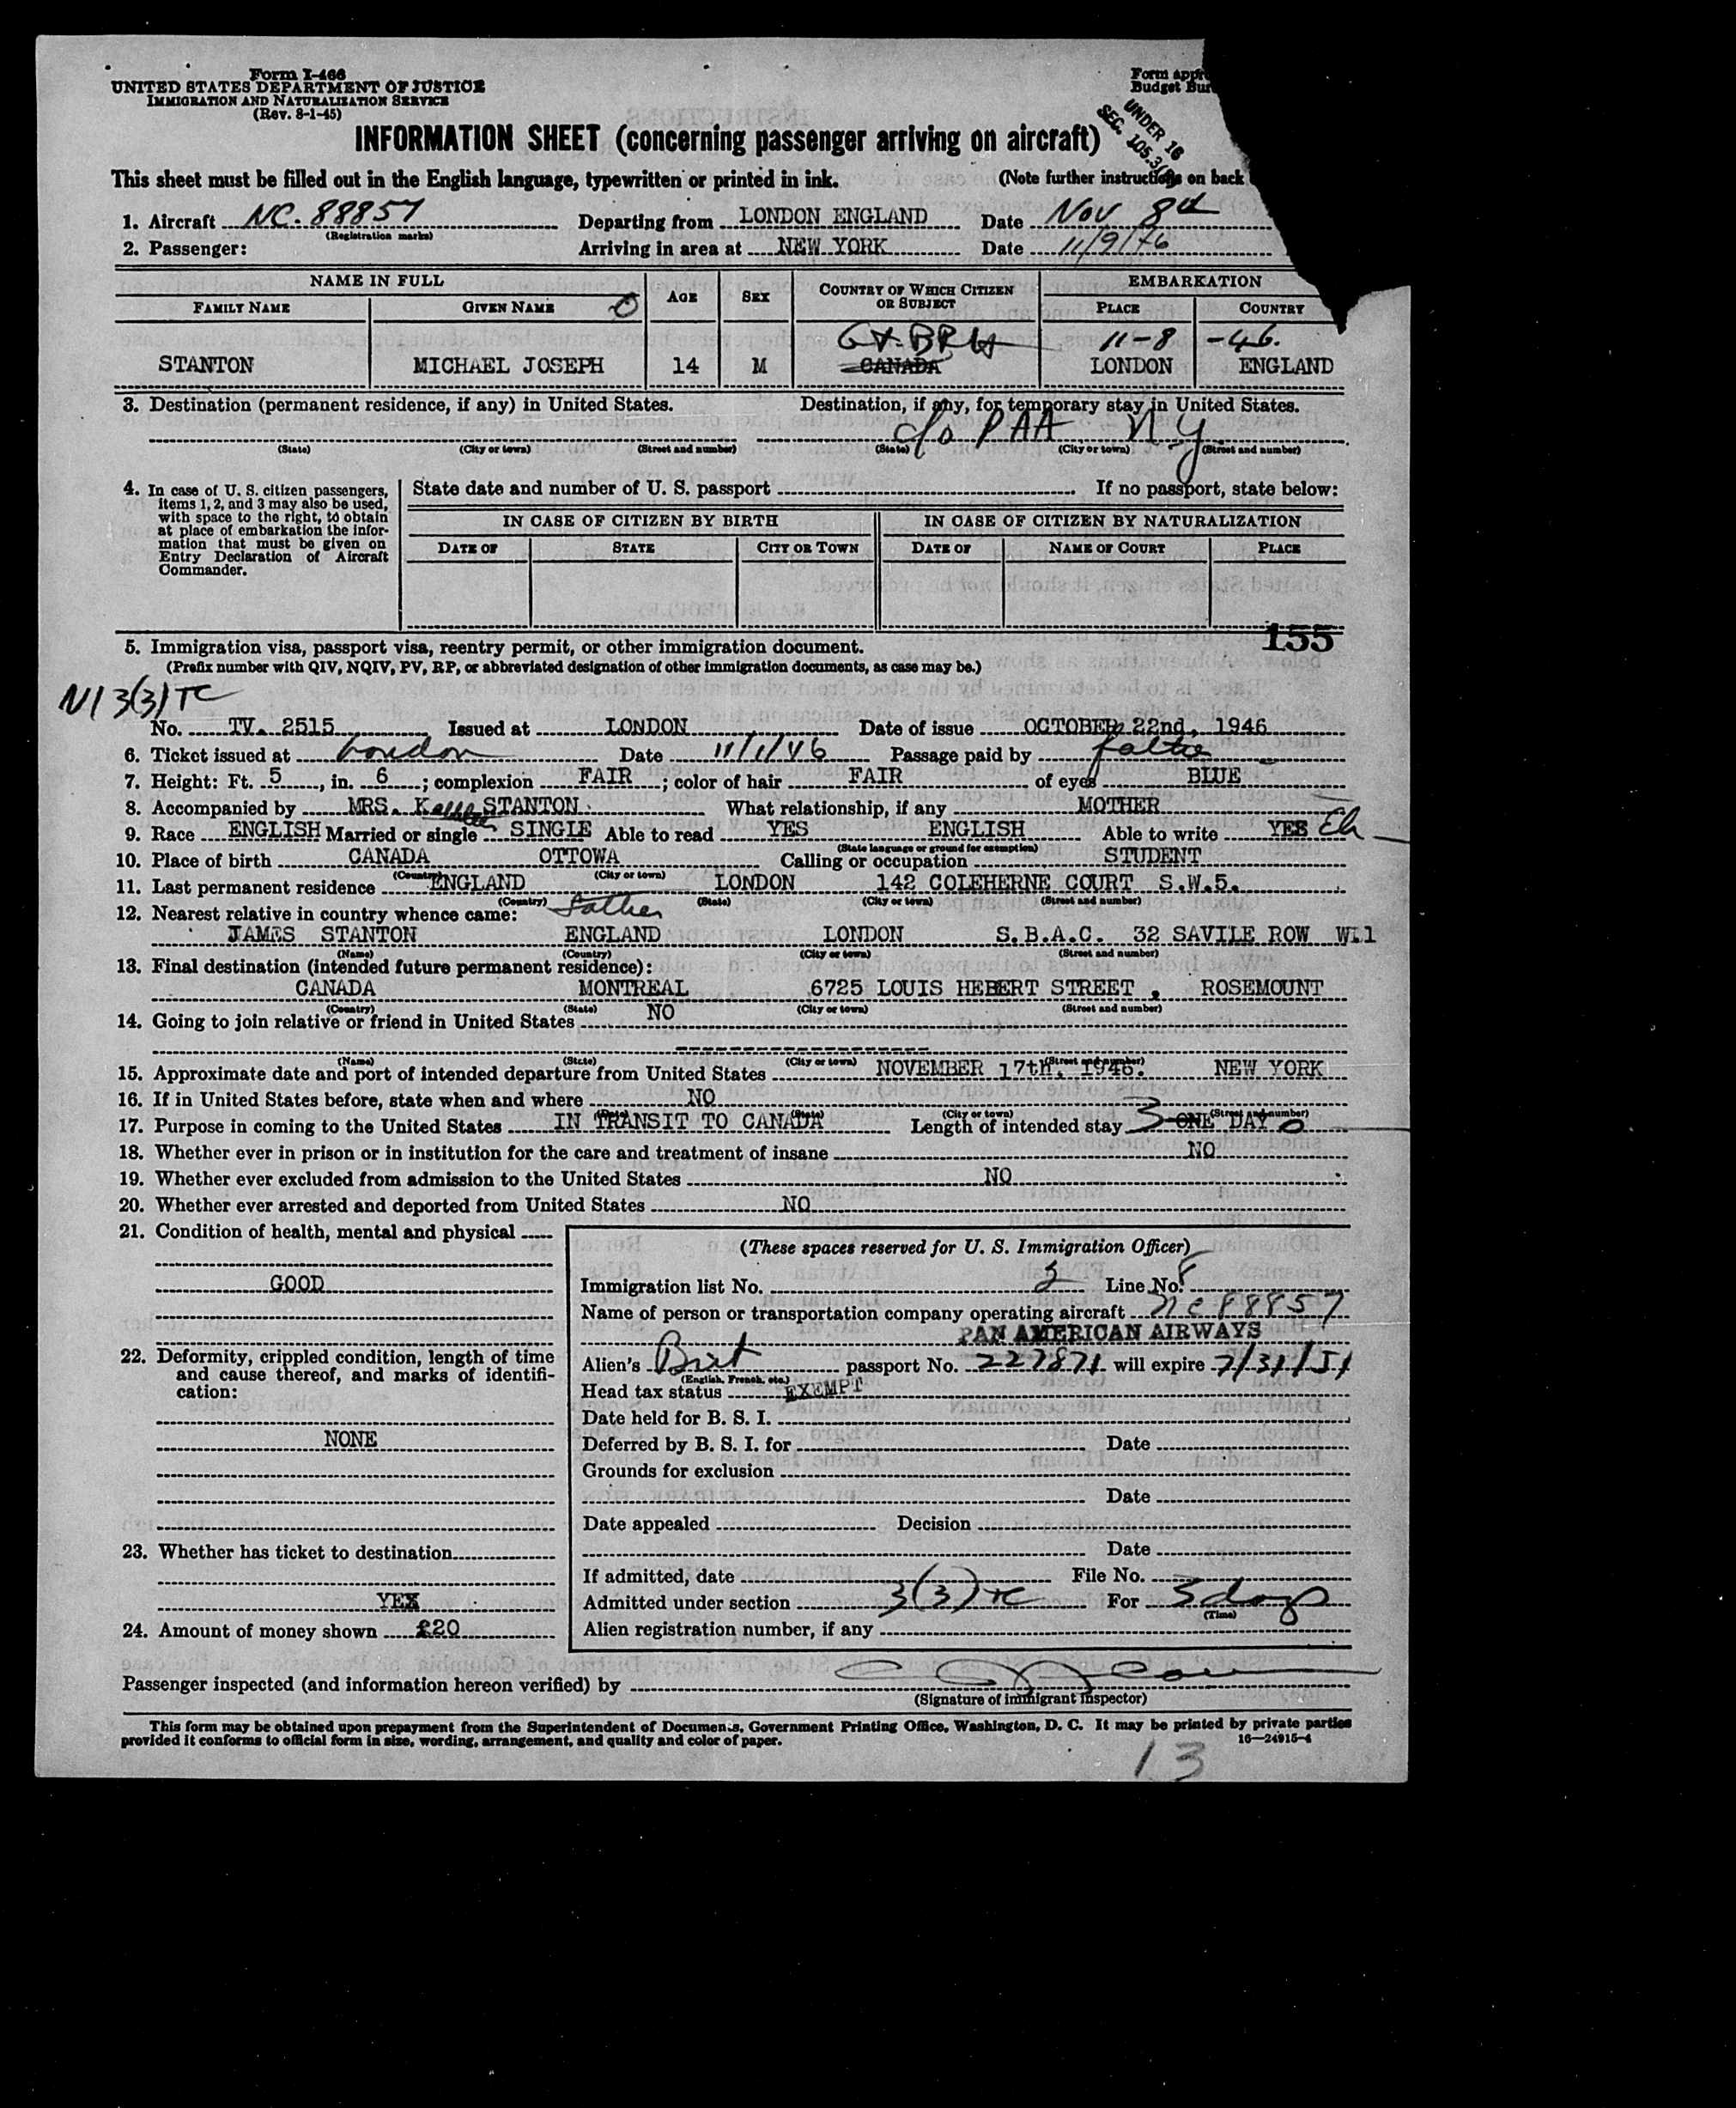 Form I-466
UNITED STATES DEPARTMENT OF JUSTICE
IMMIGRATION AND NATURALIZATION SERVICE
(Rev. 8-1-45)
Form appr
Budget Bur
UNDER 16
SEC. 105.3
INFORMATION SHEET (concerning passenger arriving on aircraft)
This sheet must be filled out in the English language, typewritten or printed in ink. (Note further instructions on back
1. Aircraft NC-88857 Departing from LONDON ENGLAND Date Nov 8th
(Registration marks)
2. Passenger: Arriving in area at NEW YORK Date 11/9/46
NAME IN FULL AGE SEX COUNTRY OF WHICH CITIZEN OR SUBJECT EMBARKATION
FAMILY NAME GIVEN NAME PLACE COUNTRY
Gt. BRIt 11-8 -46.
STANTON MICHAEL JOSEPH 14 M CANADA LONDON ENGLAND
3. Destination (permanent residence, if any) in United States. Destination, if any, for temporary stay in United States.
c/o PAA NY
(State) (City or town) (Street and number) (State) (City or town) (Street and number)
4. In case of U. S. citizen passengers, items 1, 2, and 3 may also be used, with space to the right, to obtain at place of embarkation the information that must be given on Entry Declaration of Aircraft Commander.
State date and number of U. S. passport If no passport, state below:
IN CASE OF CITIZEN BY BIRTH IN CASE OF CITIZEN BY NATURALIZATION
DATE OF STATE CITY OR TOWN DATE OF NAME OF COURT PLACE
155
5. Immigration visa, passport visa, reentry permit, or other immigration document.
(Prefix number with QIV, NQIV, PV, RP, or abbreviated designation of other immigration documents, as case may be.)
NI 3(3) TC
No. TV. 2515 Issued at LONDON Date of issue OCTOBER 22nd, 1946
6. Ticket issued at London Date 11/1/46 Passage paid by father
7. Height: Ft. 5, in. 6; complexion FAIR; color of hair FAIR of eyes BLUE
8. Accompanied by MRS. STANTON What relationship, if any MOTHER
9. Race ENGLISH Married or single SINGLE Able to read YES ENGLISH Able to write YES
(State language or ground for exemption)
10. Place of birth CANADA OTTOWA Calling or occupation STUDENT
(Country) (City or town)
11. Last permanent residence ENGLAND LONDON 142 COLEHERNE COURT S.W.5.
(Country) (State) (City or town) (Street and number)
12. Nearest relative in country whence came: Father
JAMES STANTON ENGLAND LONDON S.B.A.C. 32 SAVILE ROW W.1
(Name) (Country) (City or town) (Street and number)
13. Final destination (intended future permanent residence):
CANADA MONTREAL 6725 LOUIS HEBERT STREET , ROSEMOUNT
(Country) (State) (City or town) (Street and number)
14. Going to join relative or friend in United States NO
(Name) (State) (City or town) (Street and number)
15. Approximate date and port of intended departure from United States NOVEMBER 17th. 1946. NEW YORK
16. If in United States before, state when and where NO
(Date) (State) (City or town) (Street and number)
17. Purpose in coming to the United States IN TRANSIT TO CANADA Length of intended stay 3 ONE DAY
18. Whether ever in prison or in institution for the care and treatment of insane NO
19. Whether ever excluded from admission to the United States NO
20. Whether ever arrested and deported from United States NO
21. Condition of health, mental and physical
GOOD
22. Deformity, crippled condition, length of time and cause thereof, and marks of identification:
NONE
23. Whether has ticket to destination
YEX
24. Amount of money shown £20
(These spaces reserved for U. S. Immigration Officer)
Immigration list No. 2 Line No. 8
Name of person or transportation company operating aircraft NC88857
PAN AMERICAN AIRWAYS
Alien's Brit passport No. 227871 will expire 7/31/51
(English, French, etc.)
Head tax status EXEMPT
Date held for B. S. I.
Deferred by B. S. I. for Date
Grounds for exclusion
Date
Date appealed Decision
Date
If admitted, date File No.
Admitted under section 3(3) TC For 3 days
(Time)
Alien registration number, if any
Passenger inspected (and information hereon verified) by
(Signature of immigrant inspector)
This form may be obtained upon prepayment from the Superintendent of Documents, Government Printing Office, Washington, D. C. It may be printed by private parties
provided it conforms to official form in size, wording, arrangement, and quality and color of paper. 16—24915-4
13